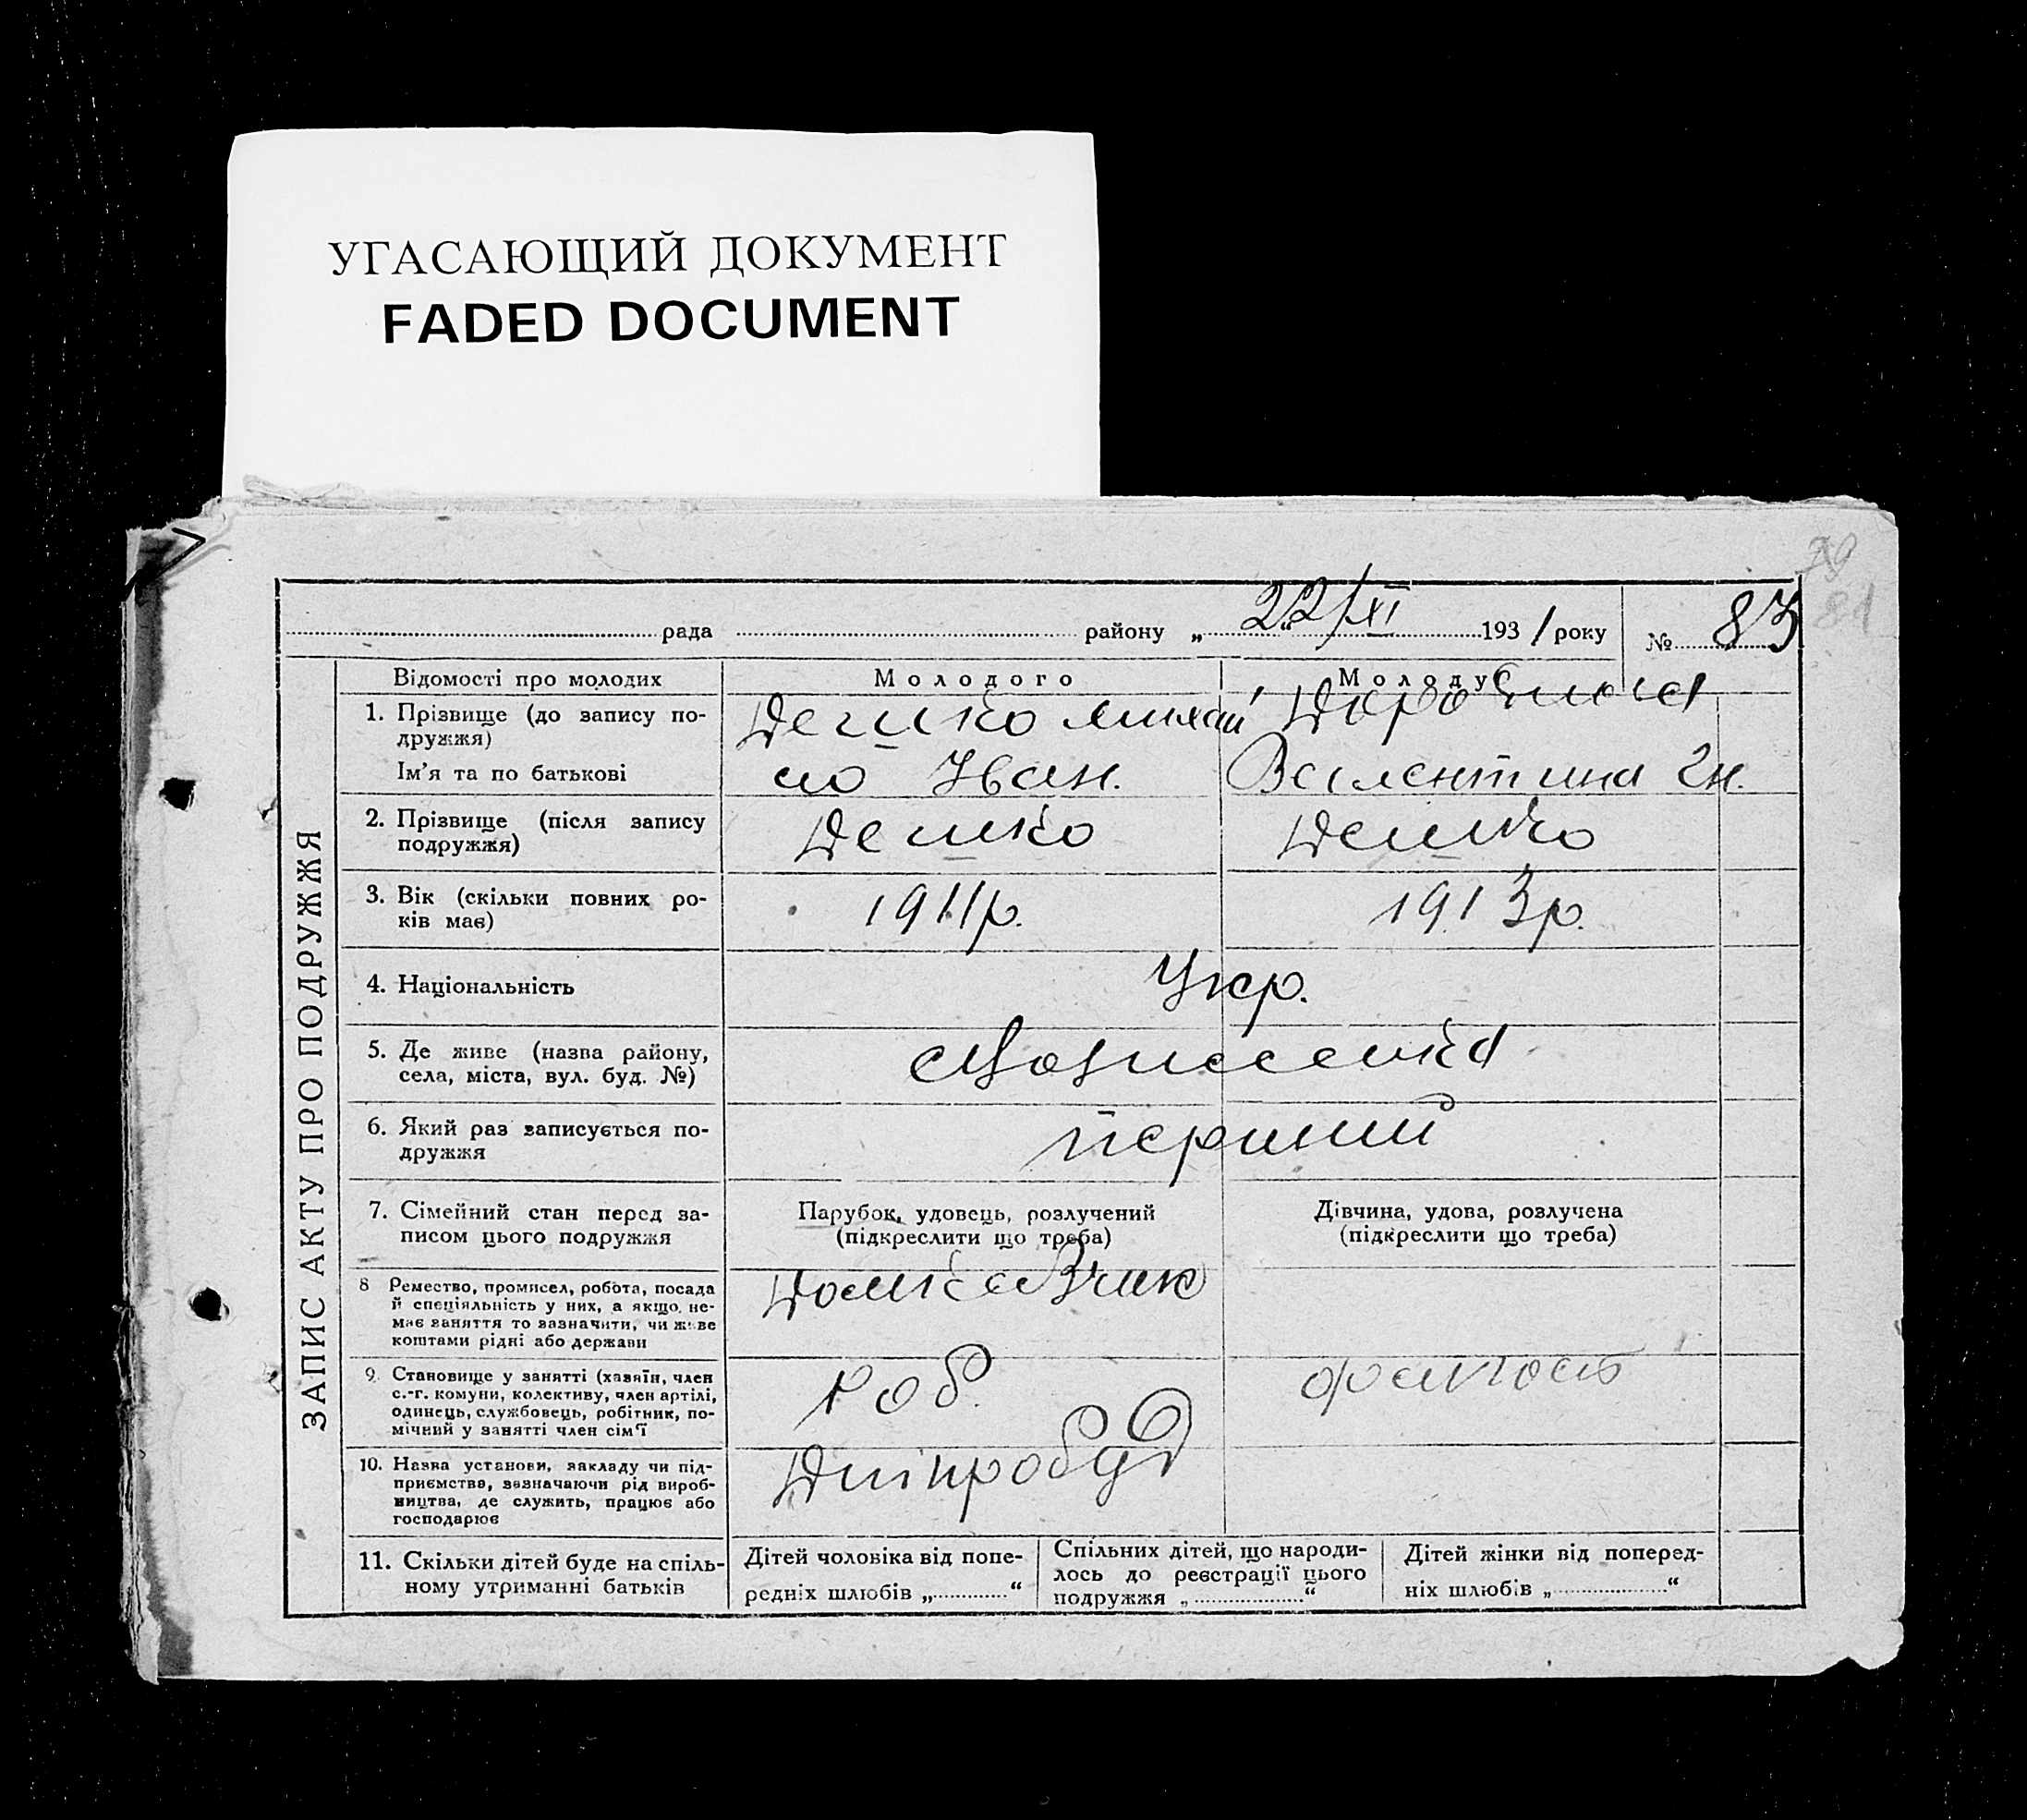 УГАСАЮЩИЙ ДОКУМЕНТ
FADED DOCUMENT
79
81
рада района „22/XI“ 1931 року № 83
ЗАПИС АКТУ ПРО ПОДРУЖЖЯ
Відомості про молодих Молодого Молодуї
1. Прізвище (до запису по-
дружжя)
Дешко Михай
Ім'я та по батькові
ло Іван. Валентина Ян.
2. Прізвище (після запису
подружжя)
Дешко Дешко
3. Вік (скільки повних ро-
ків має)
1911р. 1913р.
4. Національність
Укр.
5. Де живе (назва району,
села, міста, вул. буд. №)
6. Який раз записується по-
дружжя
перший
7. Сімейний стан перед за-
писом цього подружжя
Парубок, удовець, розлучений
(підкреслити що треба)
Дівчина, удова, розлучена
(підкреслити що треба)
8 Ремество, промисел, робота, посада
й спеціяльність у них, а якщо не-
має заняття то зазначити, чи живе
коштами рідні або держави
9. Становище у занятті (хазяїн, член
с.-г. комуни, колективу, член артілі,
одинець, службовець, робітник, по-
мічний у занятті член сім'ї
роб.
10. Назва установи, закладу чи під-
приємства, зазначаючи рід вироб-
ництва, де служить, працює або
господарює
Дніпробуд
11. Скільки дітей буде на спіль-
ному утриманні батьків
Дітей чоловіка від попе-
редніх шлюбів „ “
Спільних дітей, що народи-
лось до реєстрації цього
подружжя „ “
Дітей жінки від поперед-
ніх шлюбів „ “